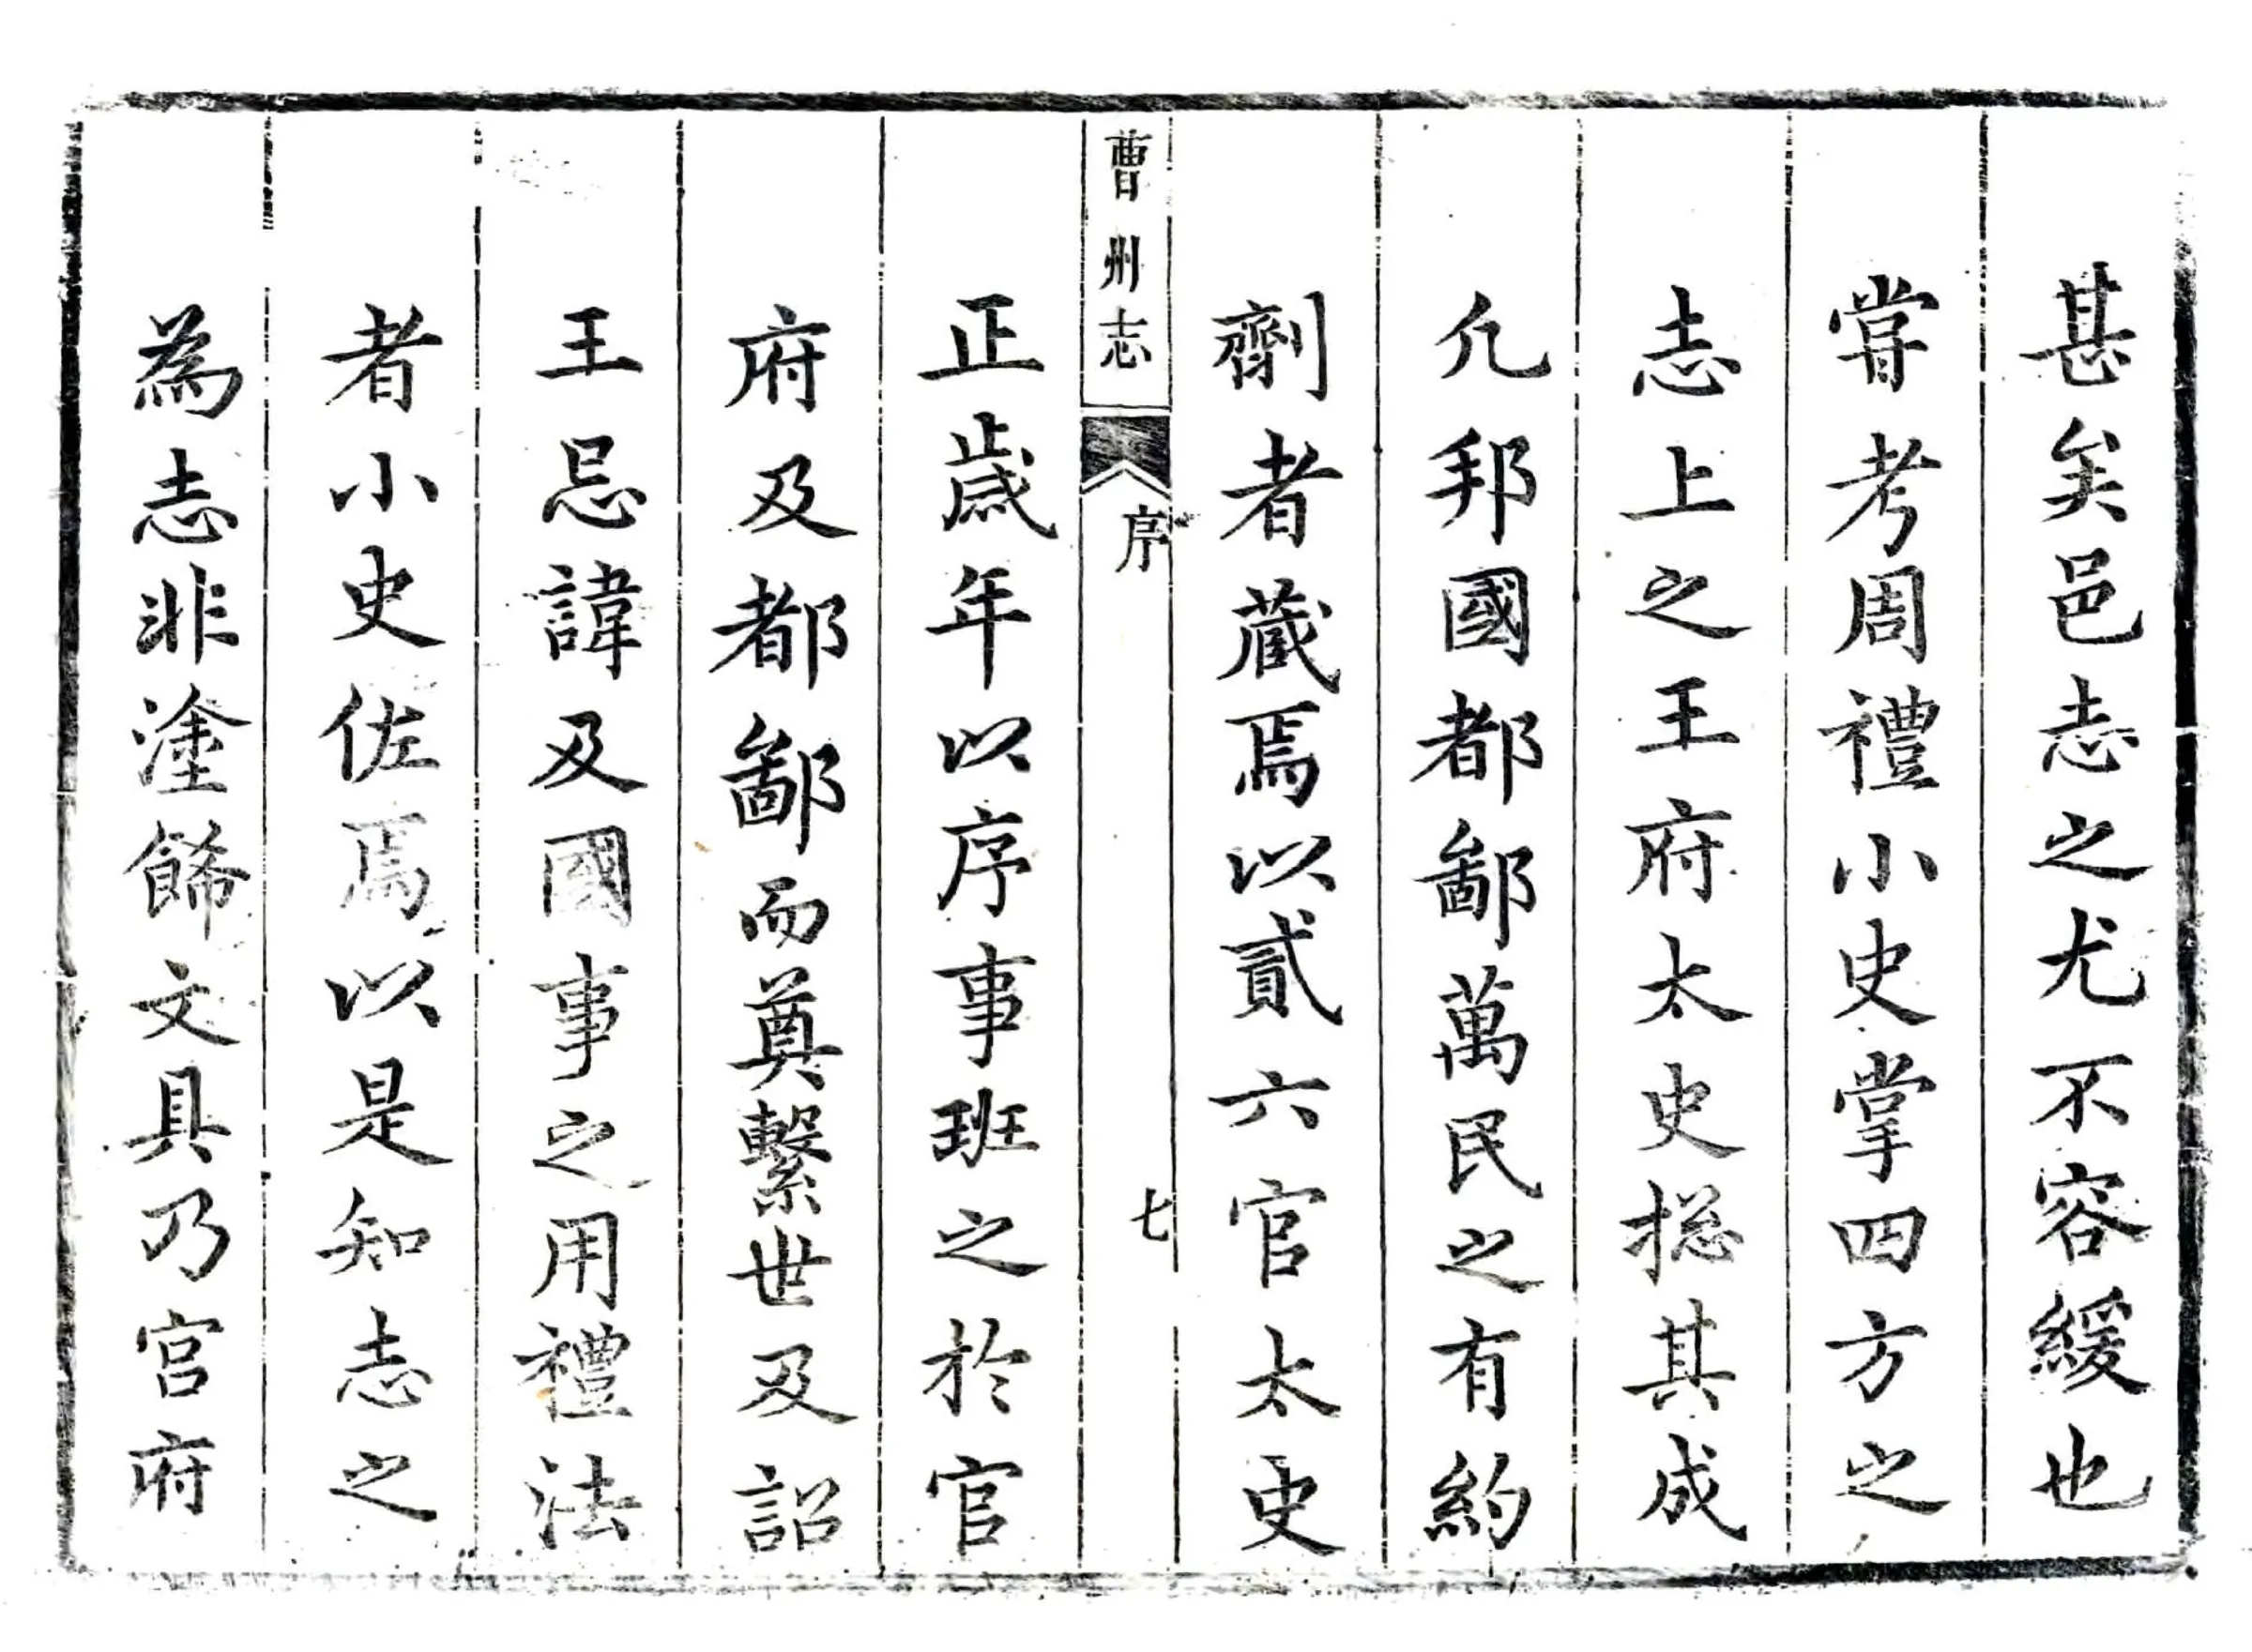 甚矣邑志之尤不容緩也
甞考周禮小史掌四方之
志上之王府太史掹其成
凢邦國都鄙萬民之有約
劑者蔵焉以貳六官太史
曹州志 序 七
正歳年以序事班之於官
府及都鄙而奠繫世及詔
王忌諱及國事之用禮法
者小史佐焉以是知志之
為志非塗餙文具乃宫府